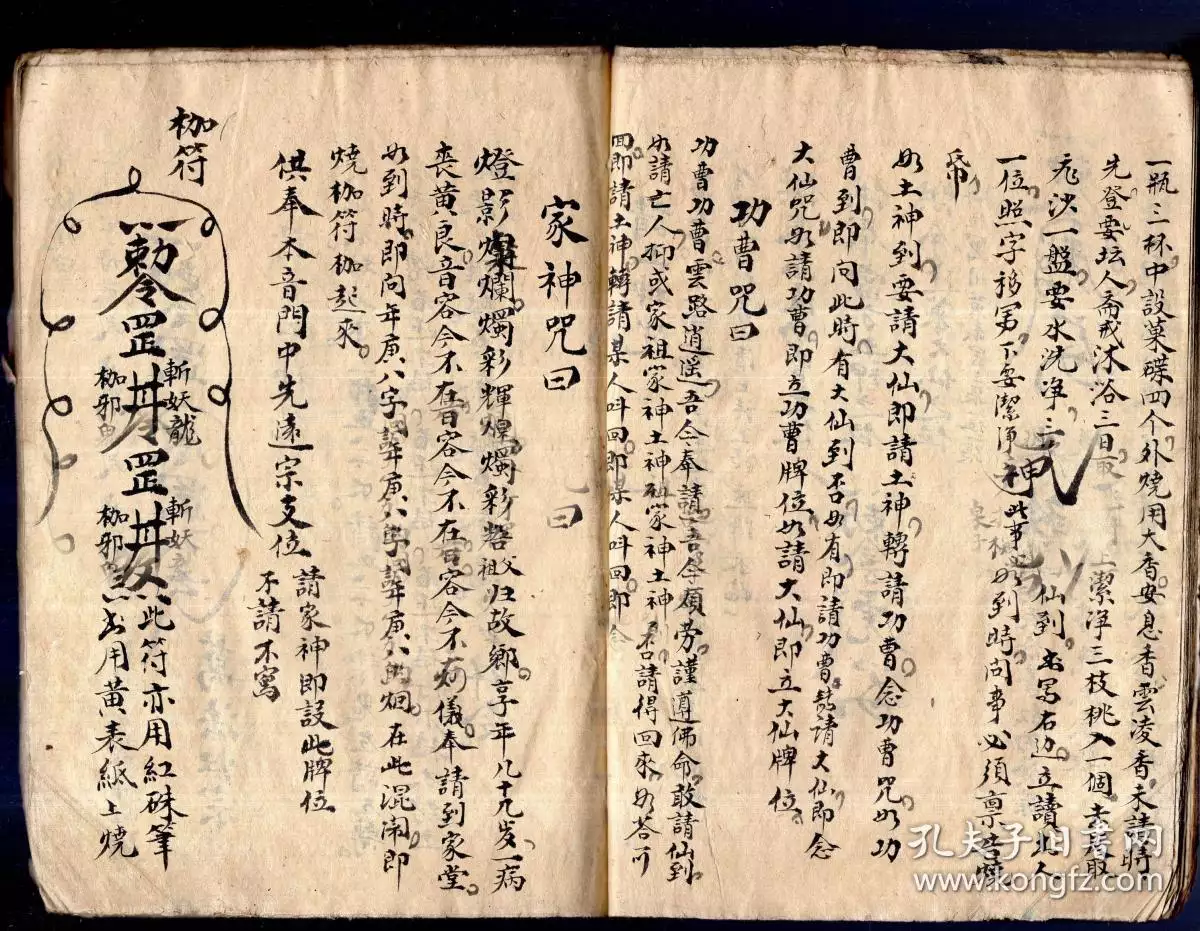 一瓶三杯中設菓碟四个外燒用大香安息香雲凌香未請時
先登要坛人齋戒沐浴三日
沙一盤要水洗净三 上潔淨三枝桃入一個
仙到 出寫右边立讀
一位照字 要潔淨 此事必 如到時問事必須禀告
如土神到要請大仙即請土神轉請功曹念功曹咒如功
曹到即向此時有大仙到否如有即請功曹轉請大仙即念
大仙咒如請功曹即立功曹牌位如請大仙即立大仙牌位
功曹咒曰
功曹功曹雲路逍遥吾今奉請吾今煩勞謹遵佛命敢請仙到
如請亡人抑或家祖家神土神 家神土神 否請得回來如若不
回即請土神轉請某人叫回即某人叫回即念
家神咒曰
燈影燦爛燭彩輝煌燭彩 父祖归故鄉享年八十九歲一病
喪黄良音容今不在音容今不在音容今不 儀奉請到家堂
如到時即向年庚八字 年庚八字 年庚八 在此混鬧即
燒枷符枷起來
供奉本音門中先遠宗支位
請家神即設此牌位
不請不寫
枷符
勅令罡
斬妖龍
枷邪鬼
罡
斬妖
枷邪
此符亦用紅硃筆
出用黄表紙上燒
孔夫子旧书网
www.kongfz.com